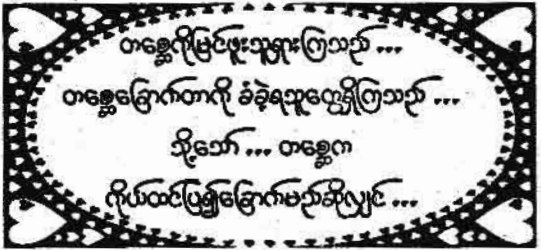 တစ္ဆေကိုမြင်ဖူးသူရှားကြသည် ...
တစ္ဆေခြောက်တာကို ခံခဲ့ရသူတွေရှိကြသည် ...
သို့သော် ... တစ္ဆေက
ကိုယ်ထင်ပြ၍ခြောက်မည်ဆိုလျှင် ...